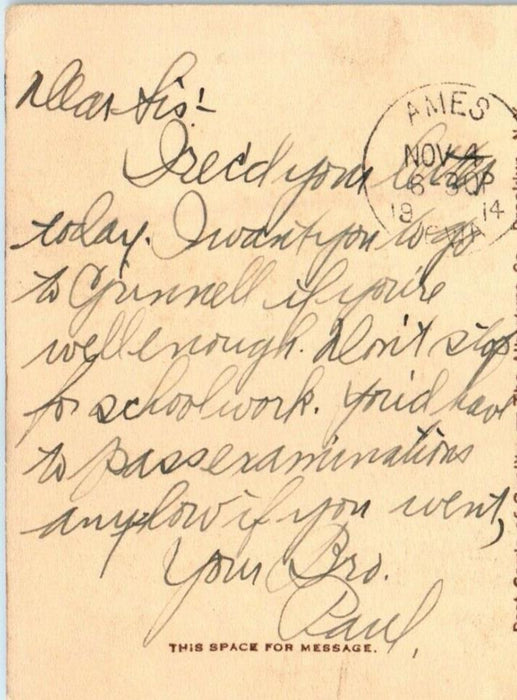 Dear Sis:-
I rec'd your letter
today. I want you to go
to Grinnell if you're
well enough. Don't stop
for school work. You'd have
to pass examinations
anyhow if you went,
Your Bro.
Paul,
AMES
NOV 4
6-30P
19 14
IOWA
THIS SPACE FOR MESSAGE.